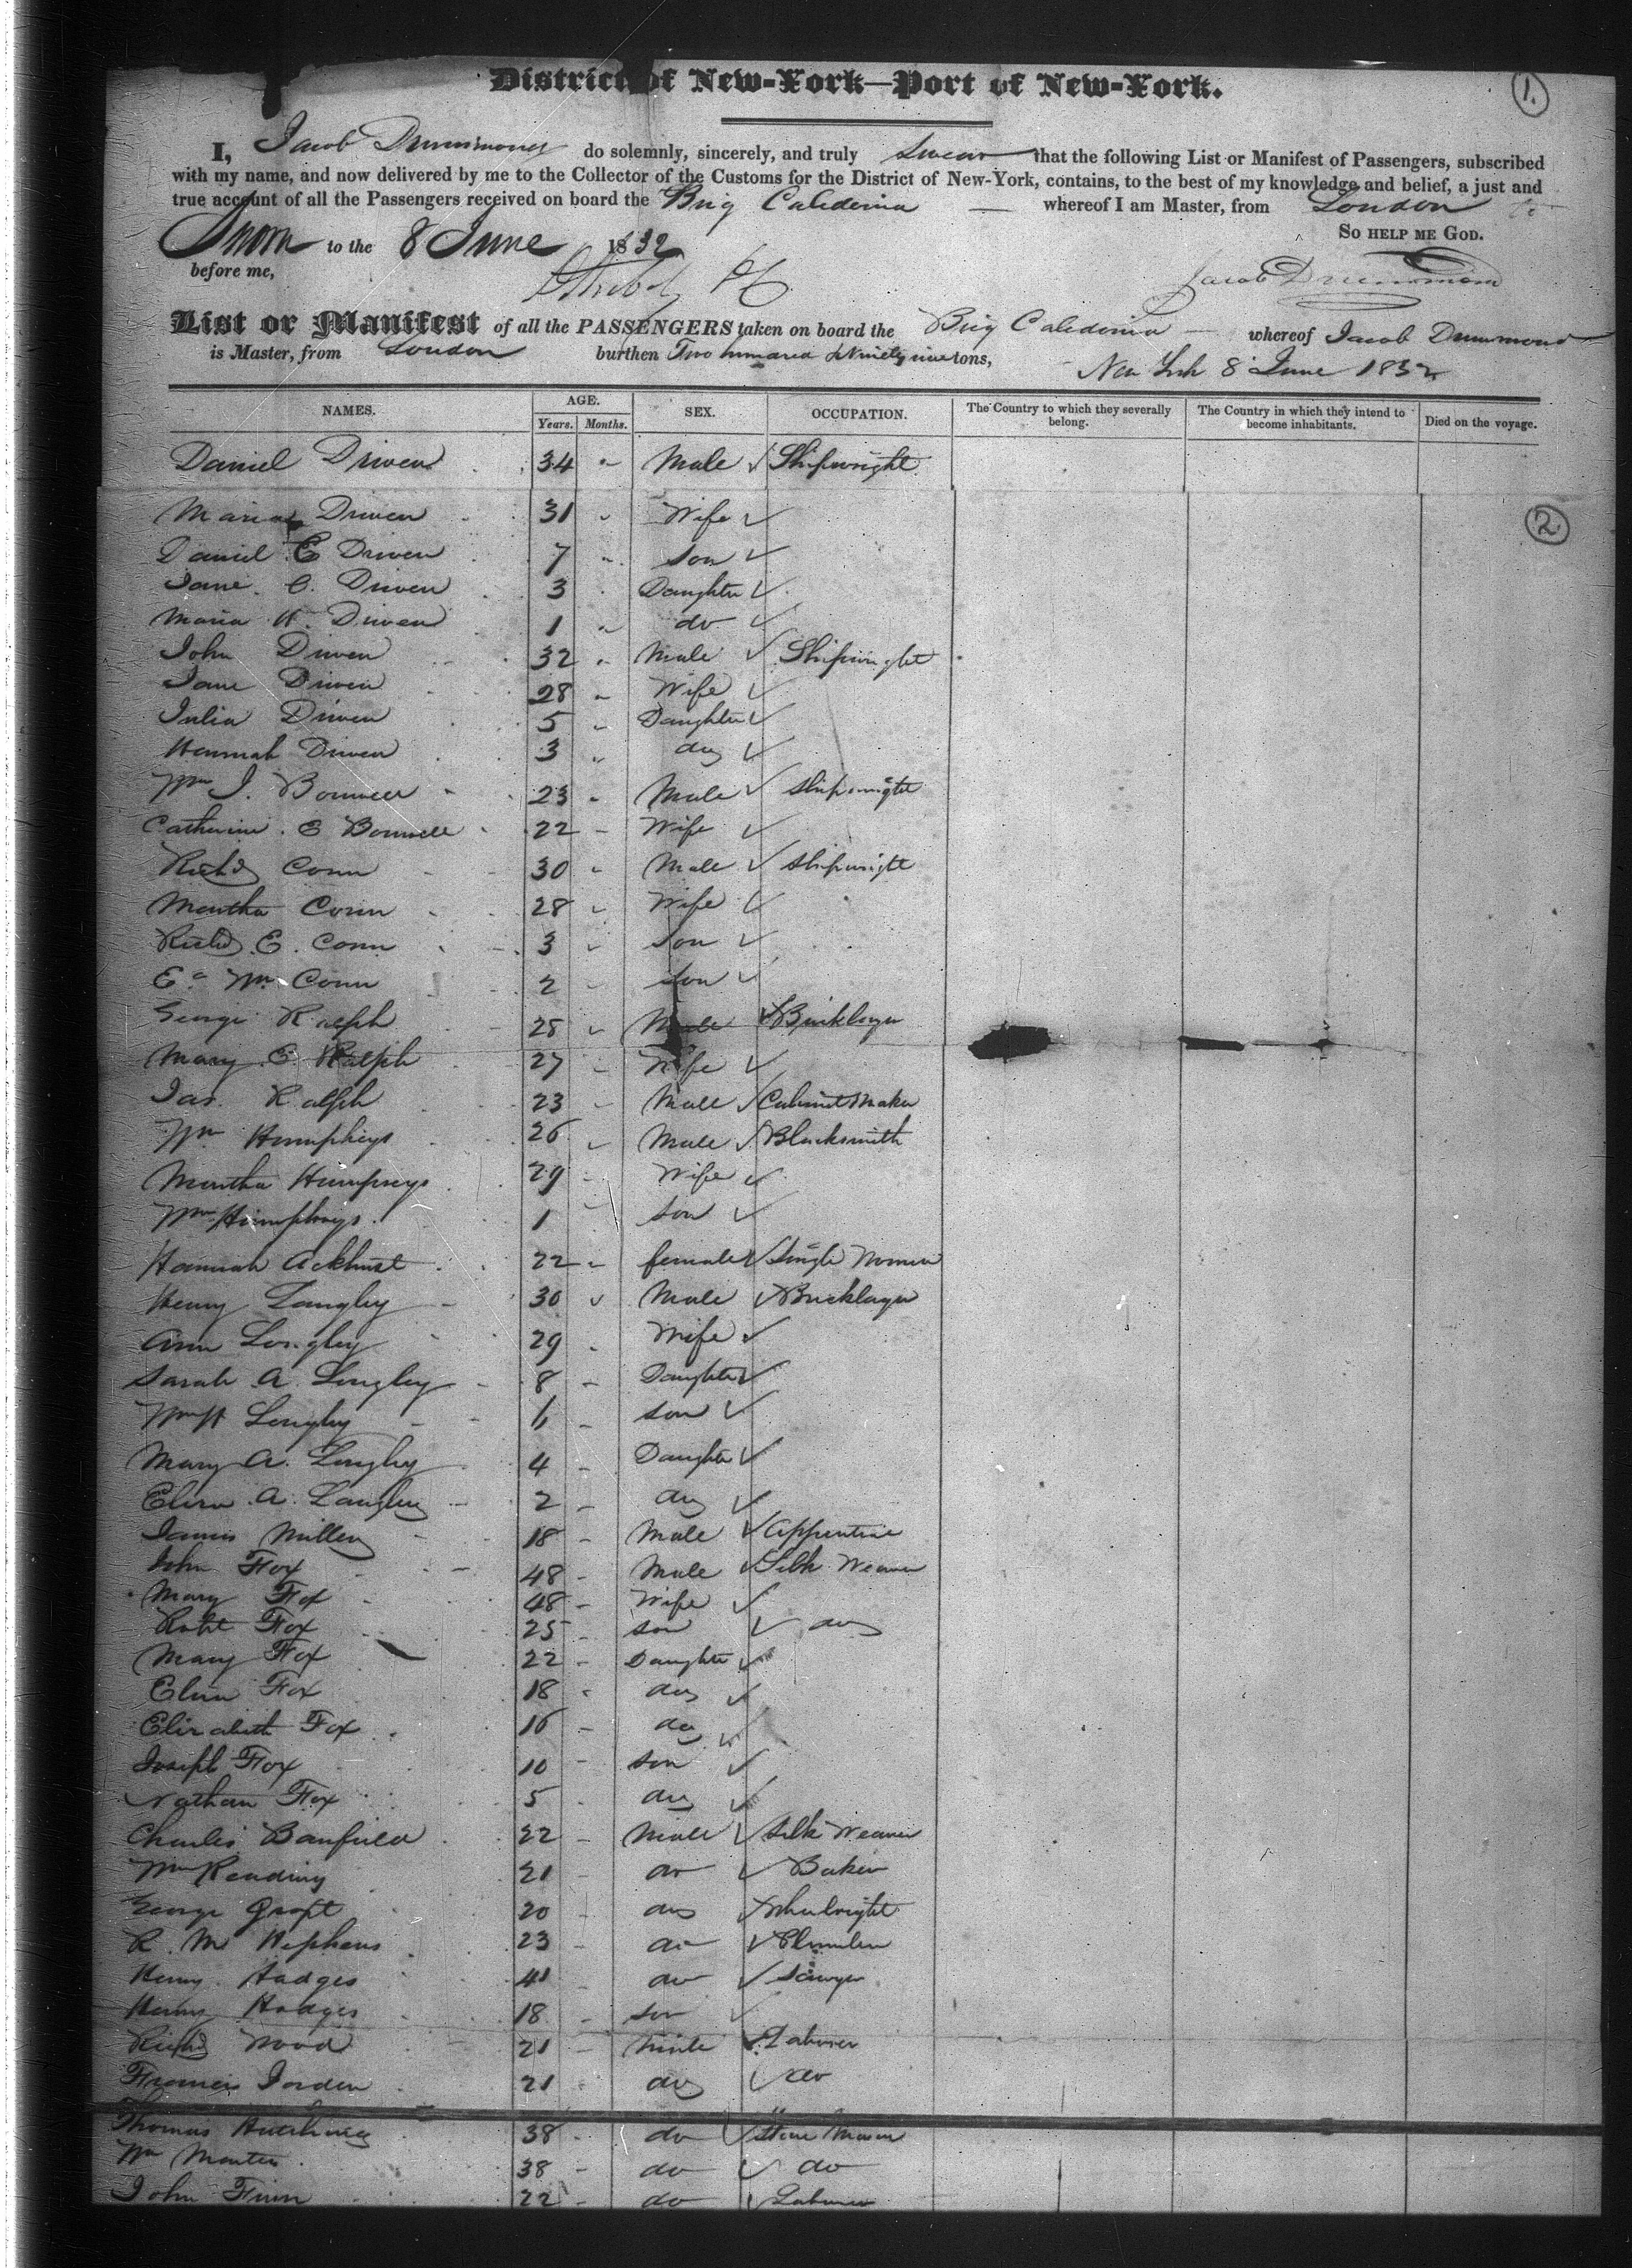 District of New-York—Port of New-York.
1.
I, Jacob Drummond do solemnly, sincerely, and truly swear that the following List or Manifest of Passengers, subscribed
with my name, and now delivered by me to the Collector of the Customs for the District of New-York, contains, to the best of my knowledge and belief, a just and
true account of all the Passengers received on board the Brig Caledonia whereof I am Master, from London
So help me God.
Sworn to the 8 June 1832
before me,
Jacob Drummond
List or Manifest of all the PASSENGERS taken on board the Brig Caledonia whereof Jacob Drummond
is Master, from London burthen Two hundred & Ninety nine tons, New York 8 June 1832
NAMES. AGE. Years. Months. SEX. OCCUPATION. The Country to which they severally belong. The Country in which they intend to become inhabitants. Died on the voyage.
Daniel Driven 34 " Male Shipwright
2
Maria Driven 31 " Wife
Daniel E Driven 7 " son
Jane C. Driven 3 " Daughter
Maria H. Driven 1 " do
John Driven 32 " Male Shipwright
Jane Driven 28 " Wife
Julia Driven 5 " Daughter
Hannah Driven 3 " do
Wm J. Bonwell 23 " Male Shipwright
Catherine E Bonwell 22 " Wife
Richd Conn 30 " Male Shipwright
Martha Conn 28 " Wife
Richd E. Conn 3 " son
Wm Conn 2 " son
George Ralph 25 " Male Bricklayer
Mary E. Ralph 27 " Wife
Jas. Ralph 23 " Male Cabinet Maker
Wm Humphreys 26 " Male Blacksmith
Martha Humphreys 29 " Wife
Wm Humphreys 1 " son
Hannah Ackhurst 22 " female Single Woman
Henry Langley 30 " Male Bricklayer
Ann Langley 29 " Wife
Sarah A. Langley 8 " Daughter
Wm H Langley 6 " son
Mary A. Langley 4 " Daughter
Eliza A. Langley 2 " do
James Miller 18 " Male Apprentice
John Fox 48 " Male Silk Weaver
Mary Fox 48 " Wife
Robt Fox 25 " son do
Mary Fox 22 " Daughter
Eliza Fox 18 " do
Elizabeth Fox 16 " do
Joseph Fox 10 " son
Nathan Fox 5 " do
Charles Banfield 22 " Male Silk Weaver
Wm Reading 21 " do Baker
George Groft 20 " do Wheelwright
R. M. 23 " do
Henry Hodges 41 do Sawyer
Henry Hodges 18 " son
Richd Wood 21 " Male Laborer
Francis Jorden 21 " do do
Thomas Hutchings 38 " do Stone Mason
Wm Martin 38 " do do
John Finn 22 " do Laborer